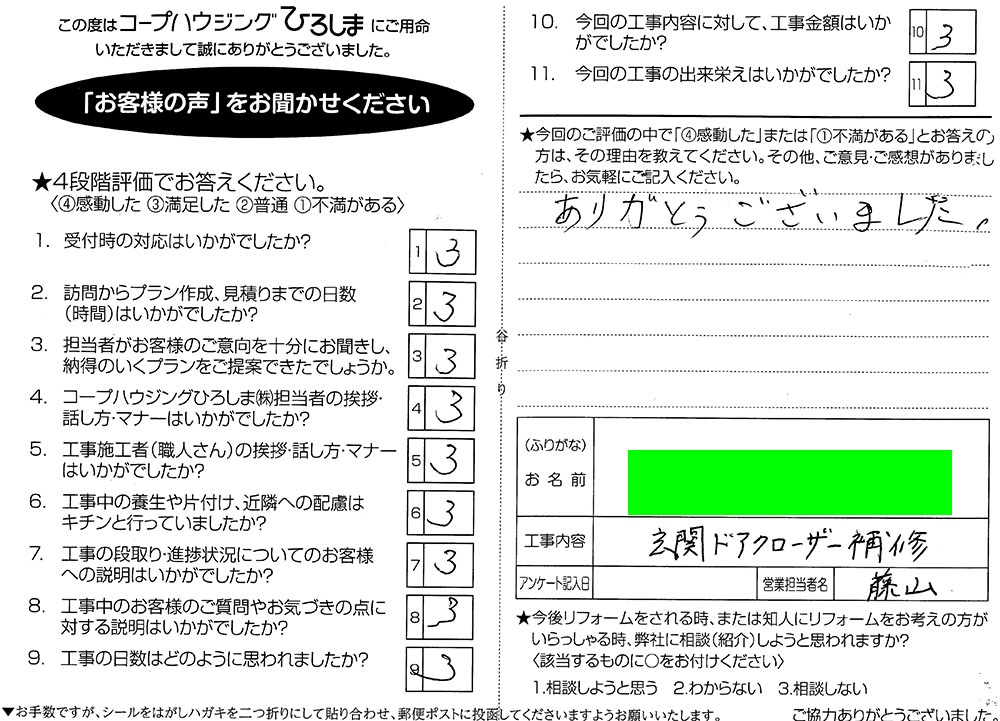 この度はコープハウジングひろしまにご用命
いただきまして誠にありがとうございました。
「お客様の声」をお聞かせください
★4段階評価でお答えください。
〈④感動した ③満足した ②普通 ①不満がある〉
1. 受付時の対応はいかがでしたか?
1 3
2. 訪問からプラン作成、見積りまでの日数
(時間)はいかがでしたか?
2 3
3. 担当者がお客様のご意向を十分にお聞きし、
納得のいくプランをご提案できたでしょうか。
3 3
4. コープハウジングひろしま㈱担当者の挨拶・
話し方・マナーはいかがでしたか?
4 3
5. 工事施工者(職人さん)の挨拶・話し方・マナー
はいかがでしたか?
5 3
6. 工事中の養生や片付け、近隣への配慮は
キチンと行っていましたか?
6 3
7. 工事の段取り・進捗状況についてのお客様
への説明はいかがでしたか?
7 3
8. 工事中のお客様のご質問やお気づきの点に
対する説明はいかがでしたか?
8 3
9. 工事の日数はどのように思われましたか?
9 3
▼お手数ですが、シールをはがしハガキを二つ折りにして貼り合わせ、郵便ポストに投函してくださいますようお願いいたします。
谷折り
10. 今回の工事内容に対して、工事金額はいか
がでしたか?
10 3
11. 今回の工事の出来栄えはいかがでしたか?
11 3
★今回のご評価の中で「④感動した」または「①不満がある」とお答えの
方は、その理由を教えてください。その他、ご意見・ご感想がありまし
たら、お気軽にご記入ください。
ありがとうございました。
(ふりがな)
お名前
工事内容 玄関ドアクローザー補修
アンケート記入日 営業担当者名 藤山
★今後リフォームをされる時、または知人にリフォームをお考えの方が
いらっしゃる時、弊社に相談(紹介)しようと思われますか?
〈該当するものに○をお付けください〉
1.相談しようと思う 2.わからない 3.相談しない
ご協力ありがとうございました。